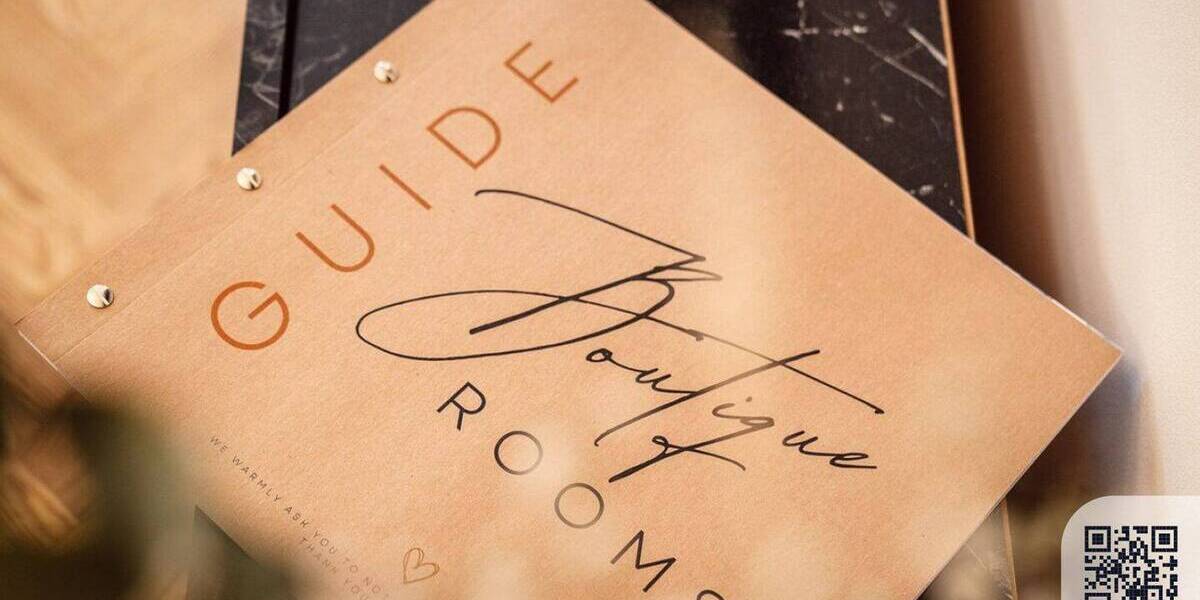 GUIDE
Boutique
ROOMS
WE WARMLY ASK YOU TO NO
THANK YOU